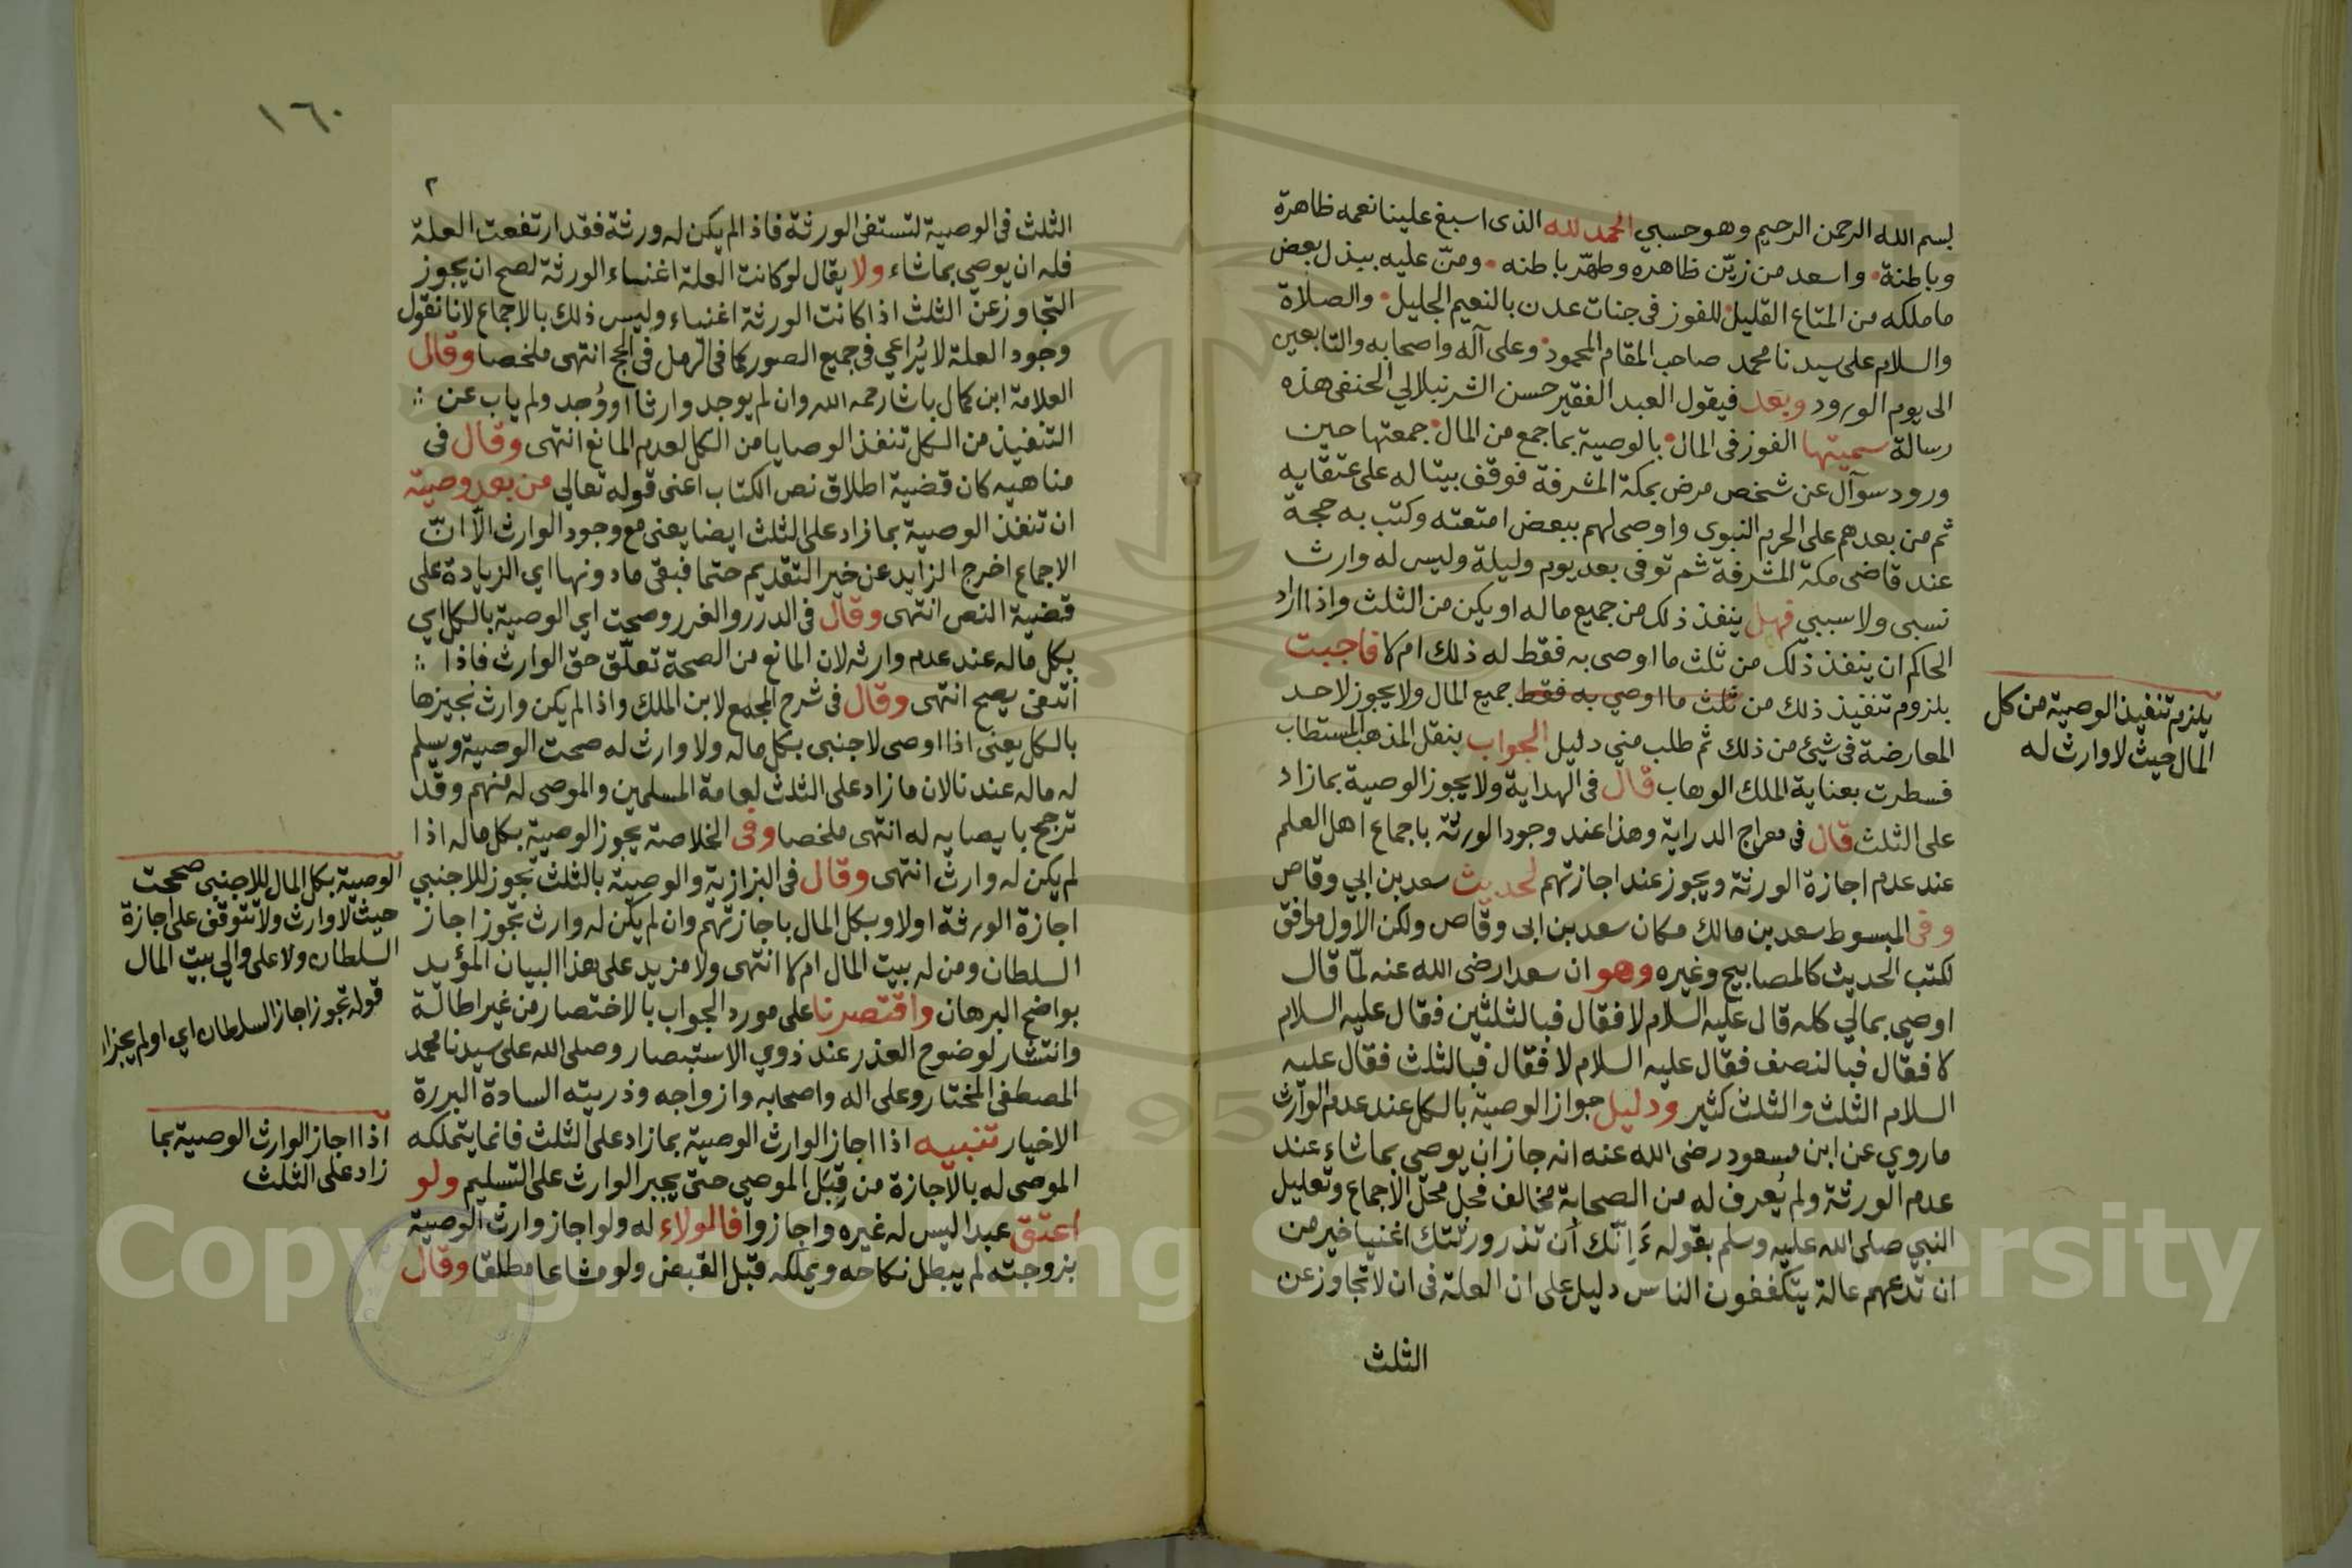 بسم الله الرحمن الرحيم وهو حسبي الحمد لله الذى اسبغ علينا نعمه ظاهرة
وباطنة واسعد من زيّن ظاهره وطهّر باطنه ومنّ عليه ببذل بعض
ما ملكه من المتاع القليل للفوز فى جنات عدن بالنعيم الجليل والصلاة
والسلام على سيدنا محمد صاحب المقام المحمود وعلى آله واصحابه والتابعين
الى يوم الورود وبعد فيقول العبد الفقير حسن الشرنبلالي الحنفى هذه
رسالة سميتها الفوز فى المال بالوصية بما جمع من المال جمعتها حين
ورود سوآل عن شخص مرض بمكة المشرفة فوقف بيتا له على عتقايه
ثم من بعدهم على الحرم النبوى واوصى لهم ببعض امتعته وكتب به حجة
عند قاضى مكة المشرفة ثم توفى بعد يوم وليلة وليس له وارث
نسبى ولا سببي فهل ينفذ ذلك من جميع ماله او يكن من الثلث واذا اراد
الحاكم ان ينفذ ذلك من ثلث ما اوصى به فقط له ذلك ام لا فاجبت
بلزوم تنفيذ ذلك من ثلث ما اوصي به فقط جميع المال ولا يجوز لاحد
المعارضة فى شيئ من ذلك ثم طلب مني دليل الجواب بنقل المذهب المستطاب
فسطرت بعناية الملك الوهاب قال فى الهداية ولا يجوز الوصية بما زاد
على الثلث قال فى معراج الدراية وهذا عند وجود الورثة باجماع اهل العلم
عند عدم اجازة الورثة ويجوز عند اجازتهم لحديث سعد بن ابي وقاص
وفى المبسوط سعد بن مالك مكان سعد بن ابى وقاص ولكن الاول موافق
لكتب الحديث كالمصابيح وغيره وهو ان سعدا رضى الله عنه لمّا قال
اوصي بمالي كله قال عليه السلام لا فقال فبالثلثين فقال عليه السلام
لا فقال فبالنصف فقال عليه السلام لا فقال فبالثلث فقال عليه
السلام الثلث والثلث كثير ودليل جواز الوصية بالكل عند عدم الوارث
ما روي عن ابن مسعود رضى الله عنه انه جاز ان يوصى بما شاء عند
عدم الورثة ولم يُعرف له من الصحابة مخالف فحلّ محلّ الاجماع وتعليل
النبي صلى الله عليه وسلم بقوله إنّك أن تذر ورثتك اغنيا خير من
ان تدعهم عالة يتكففون الناس دليل على ان العلة فى ان لا تجاوز عن
الثلث
يلزم تنفيذ الوصية من كل
المال حيث لا وارث له
١٦٠
٢
الثلث فى الوصية لتستغنى الورثة فاذا لم يكن له ورثة فقد ارتفعت العلة
فله ان يوصي بما شاء ولا يقال لو كانت العلة اغنياء الورثة لصح ان يجوز
التجاوز عن الثلث اذا كانت الورثة اغنياء وليس ذلك بالاجماع لانا نقول
وجود العلة لا يُراعي فى جميع الصور كما فى الرمل فى الحج انتهى ملخصا وقال
العلامة ابن كمال باشا رحمه الله وان لم يوجد وارثا او وُجد ولم ياب عن
التنفيذ من الكل تنفذ الوصايا من الكل لعدم المانع انتهى وقال فى
مناهيه كان قضية اطلاق نص الكتاب اعنى قوله تعالي من بعد وصية
ان تنفذ الوصية بما زاد على الثلث ايضا يعنى مع وجود الوارث الّا انّ
الاجماع اخرج الزايد عن خير التقديم حتما فبقى ما دونها اي الزيادة على
قضية النص انتهى وقال فى الدرر والغرر وصحت اي الوصية بالكل اي
بكل ماله عند عدم وارثه لان المانع من الصحة تعلّق حق الوارث فاذا
انتفى يصح انتهى وقال فى شرح المجمع لابن الملك واذا لم يكن وارث نجيزها
بالكل يعنى اذا اوصى لاجنبى بكل ماله ولا وارث له صحت الوصية ويسلم
له ماله عندنا لان ما زاد على الثلث لعامة المسلمين والموصى له منهم وقد
ترجح بايصايه له انتهى ملخصا وفى الخلاصة يجوز الوصية بكل ماله اذا
لم يكن له وارث انتهى وقال فى البزازية والوصية بالثلث تجوز للاجنبي
اجازة الورثة اولا وبكل المال باجازتهم وان لم يكن له وارث تجوز اجاز
السلطان ومن له بيت المال ام لا انتهى ولا مزيد على هذا البيان المؤيد
بواضح البرهان واقتصرنا على مورد الجواب بالاختصار من غير اطالة
وانتشار لوضوح العذر عند ذوي الاستبصار وصلى الله على سيدنا محمد
المصطفى المختار وعلى اله واصحابه وازواجه وذريته السادة البررة
الاخيار تنبيه اذا اجاز الوارث الوصية بما زاد على الثلث فانما يتملكه
الموصى له بالاجازة من قِبَل الموصي حتى يجبر الوارث على التسليم ولو
اعتق عبدا ليس له غيره واجازوا فالولاء له ولو اجاز وارث الوصية
بزوجته لم يبطل نكاحه ويملكه قبل القبض ولو مشاعا مطلقا وقال
الوصية بكل المال للاجنبى صححت
حيث لا وارث ولا تتوقف على اجازة
السلطان ولا على والي بيت المال
قوله تجوز اجاز السلطان اي او لم يجز
اذا اجاز الوارث الوصية بما
زاد على الثلث
Copyright © King Saud University
195